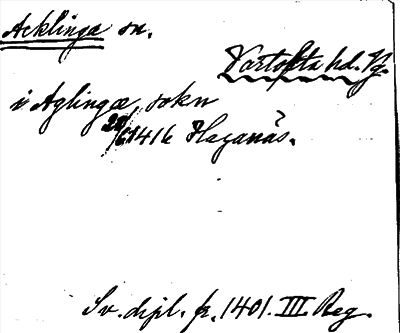 Acklinga sn.
Vartofta hd. Vg.
i Aglinga sokn
20/6 1416 Haganäs.
Sv. dipl. fr. 1401. III. Reg.